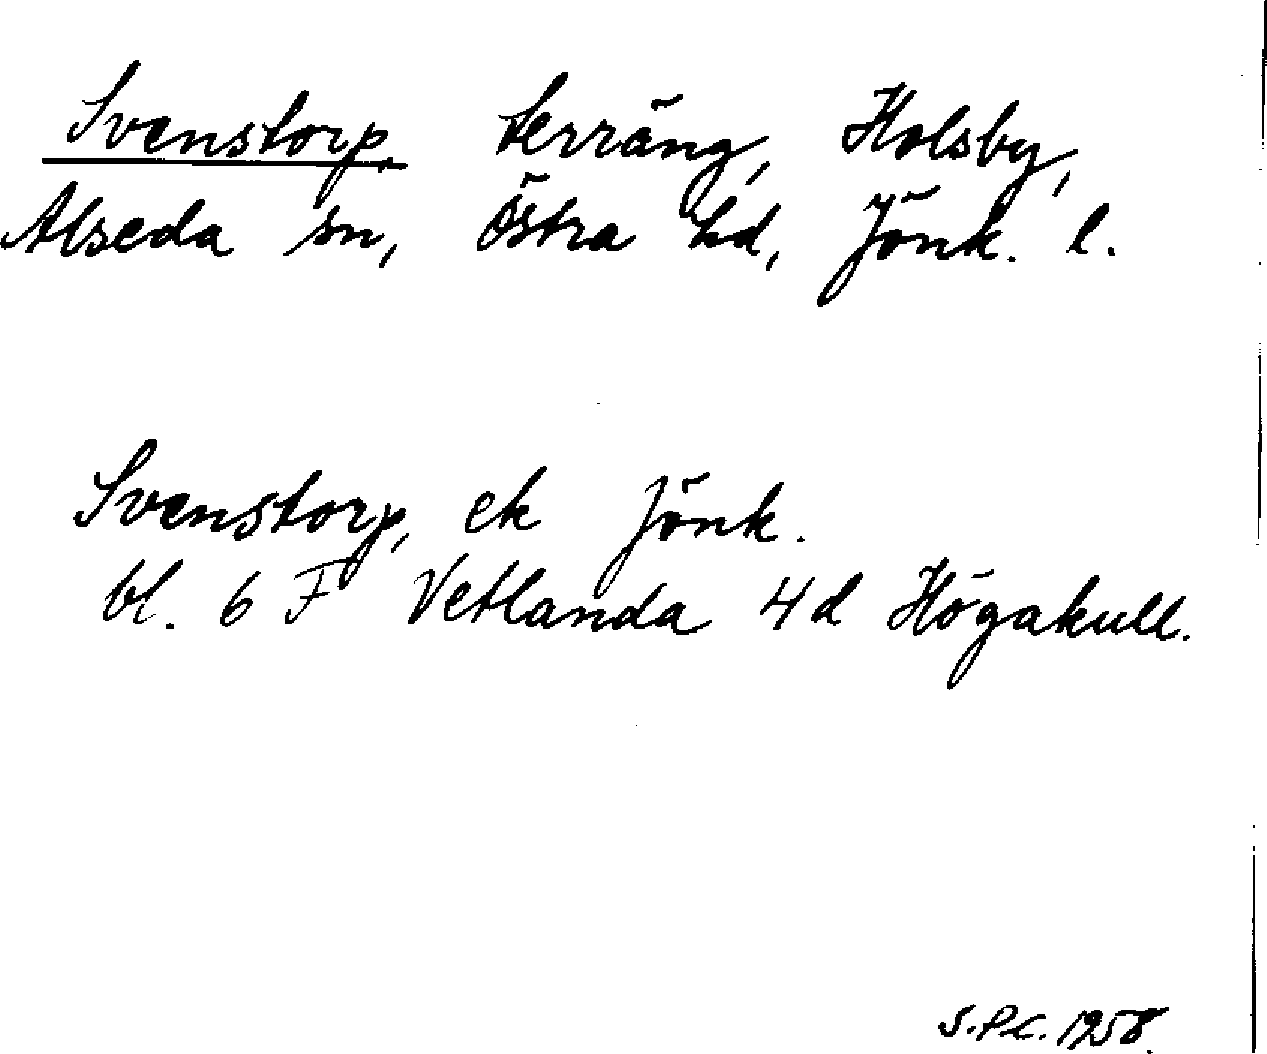 Svenstorp, terräng, Holsby,
Alseda sn, Östra hd, Jönk. l.
Svenstorp, ek Jönk.
bl. 6 F Vetlanda 4d Högakull.
S.P.C. 1958.